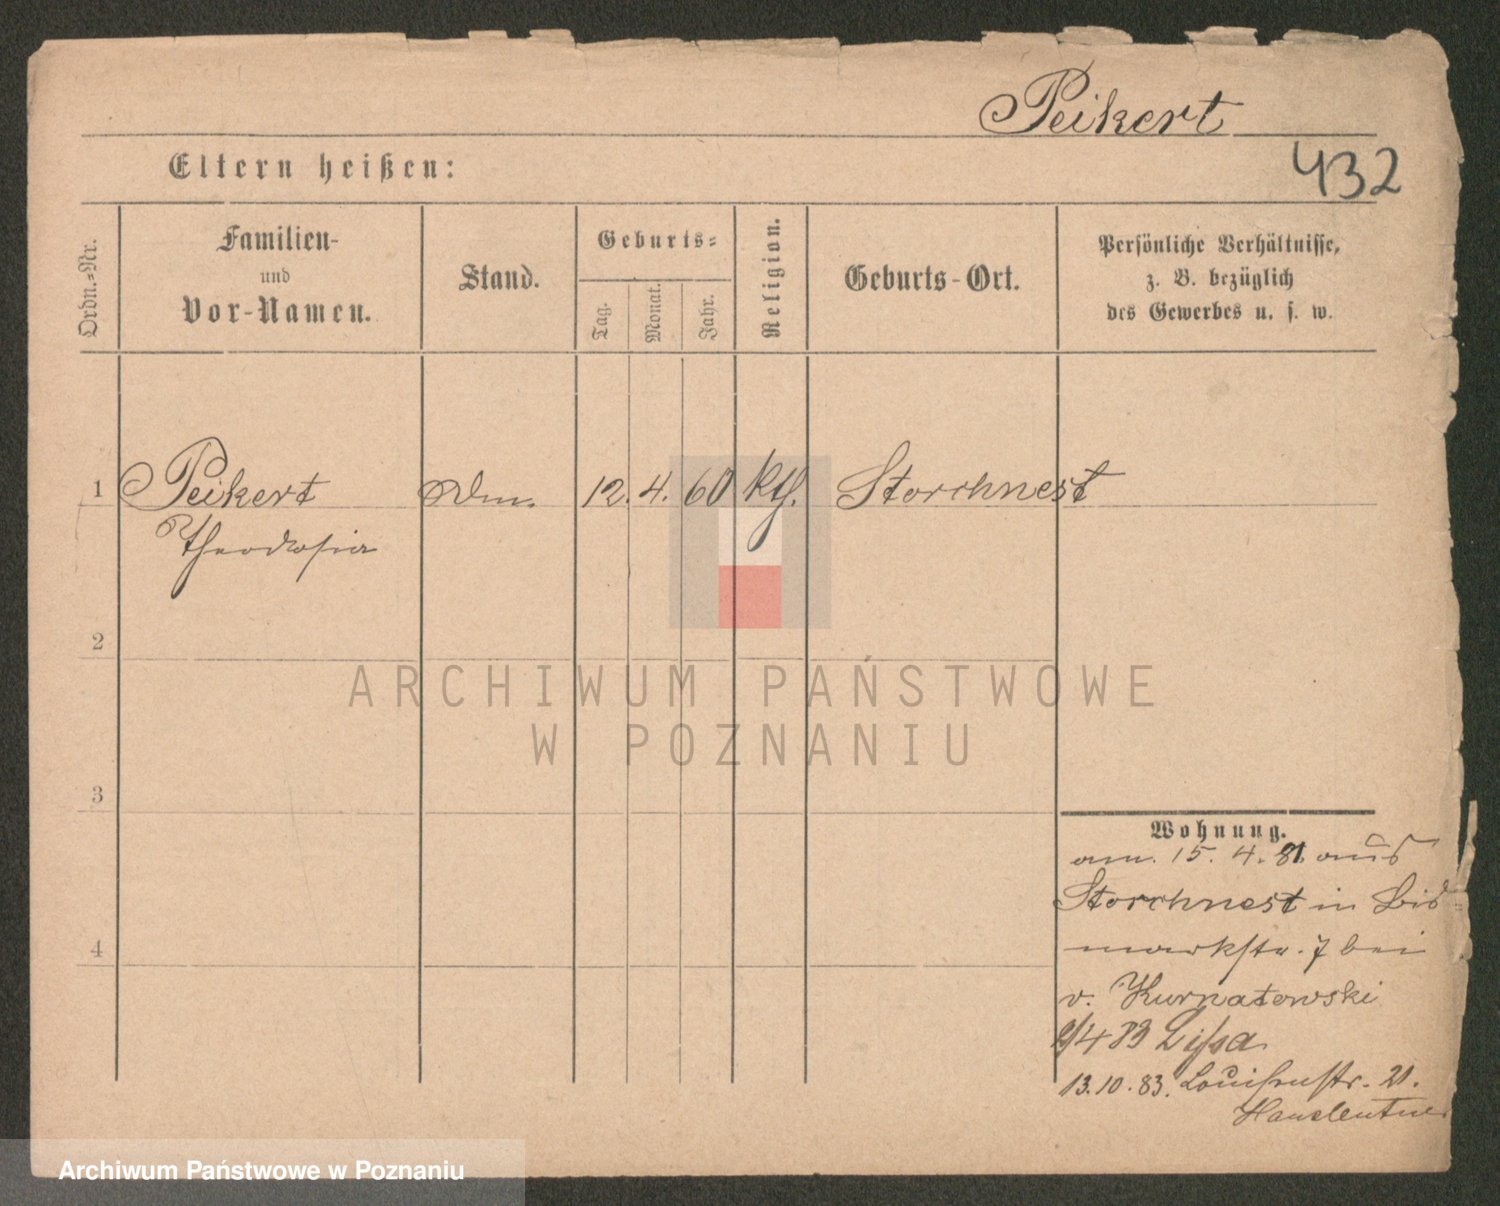 Peikert
432
Eltern heißen:
Ordn.-Nr.
Familien-
und
Vor-Namen.
Stand.
Geburts-
Tag.
Monat.
Jahr.
Religion.
Geburts-Ort.
Persönliche Verhältnisse,
z. B. bezüglich
des Gewerbes u. s. w.
1 Peikert 12. 4. 60 kth. Storchnest
Theodosia
2
3
4
Wohnung.
am. 15. 4. 81. aus
Storchnest in Bis
markstr. 7 bei
v. Kurnatowski
/4 83 Lissa
13.10.83. Louisenstr. 21.
ARCHIWUM PAŃSTWOWE
W POZNANIU
Archiwum Państwowe w Poznaniu